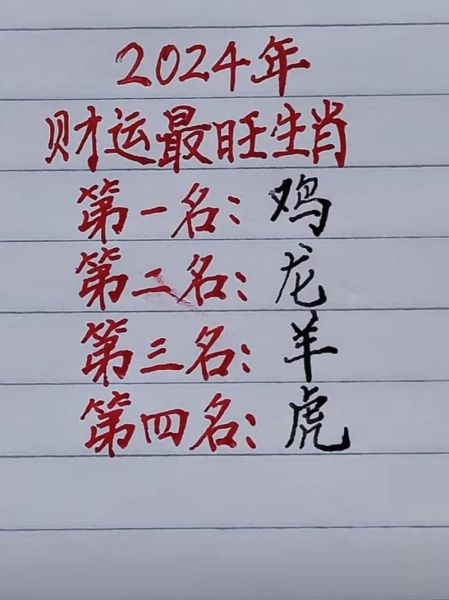 2024年
财运最旺生肖
第一名：鸡
第二名：龙
第三名：羊
第四名：虎